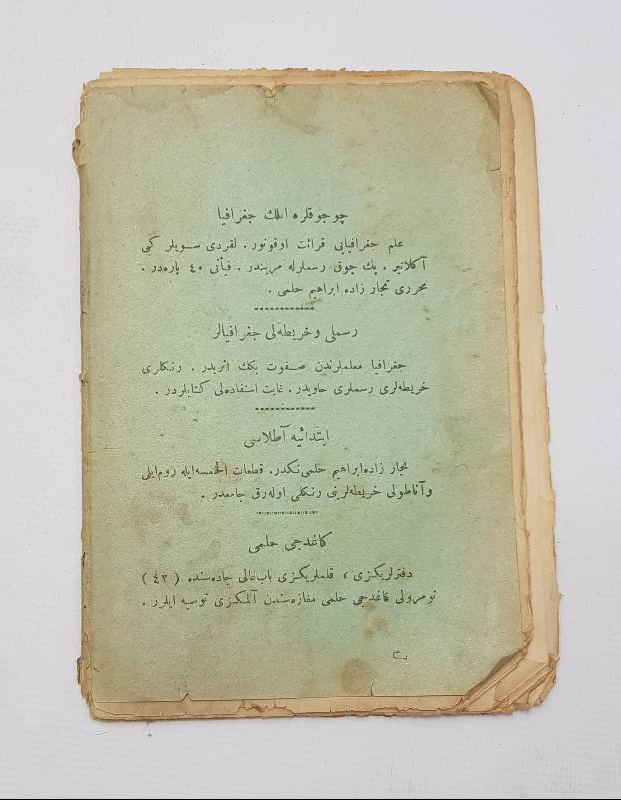 چوجوقلره ایلك جغرافیا
علم جغرافیایی قرائت اوقونور . لقردی سویلر كبی
آكلاتیر . پك چوق رسملرله مزیندر . فیأتی ٤٠ پاره‌در .
محرری تجار زاده ابراهیم حلمی .
رسملی و خریطه‌لی جغرافیالر
جغرافیا معلملرندن صفوت بكك اثریدر . رنكلری
خریطه‌لری رسملری حاویدر . غایت استفاده‌لی كتابلردر .
ابتدائیه آطلاسی
تجار زاده ابراهیم حلمی‌نكدر. قطعات الخمسه ایله روم ایلی
و آناطولی خریطه‌لرینی رنكلی اوله‌رق جامعدر .
كاغدجی حلمی
دفترلریكزی ، قلملریكزی باب‌عالی جاده‌سنده ( ٤٣ )
نومرولی كاغدجی حلمی مغازه‌سندن آلمكزی توصیه ایلرز .